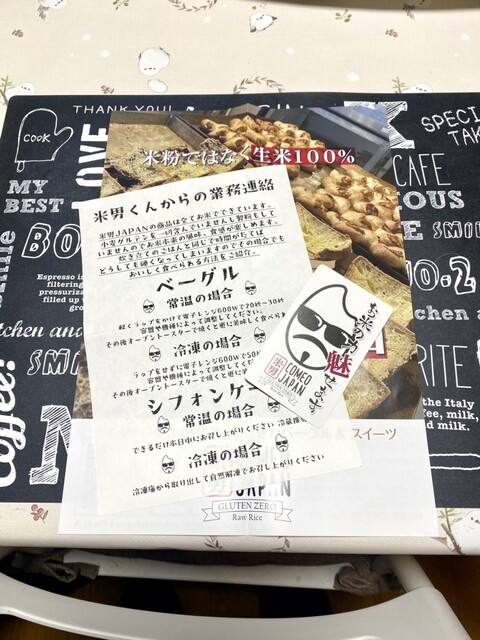 THANK YOU!
COOK
LOVE
MY
BEST
SPECI
TAK
CAFE
IOUS
SMI
NO.2
RITE
SMIN
Espresso is
filtering
pressuriz
filled up
grou
the Italy
fee, milk,
and milk.
Coffee!
米粉ではなく生米100%
米男くんからの業務連絡
米男JAPANの商品は全てお米でできています。
小麦グルテンを一切含んでいませんし製粉もして
いませんのでお米本来の風味、食感が楽しめます。
炊き立てのごはんと同じで時間がたてば
どうしても硬くなってしまいますのでその場合でも
おいしく食べられる方法をご紹介。
ベーグル
常温の場合
軽くラップをかけて電子レンジ600Wで20秒〜30秒
容態や機種によって調整してください。
その後オーブントースターで焼くと更に美味しく食べら
冷凍の場合
ラップをせずに電子レンジ600Wで50
容態や機種によって調整して
その後オーブントースターで焼くと更に
シフォンケー
常温の場合
できるだけ本日中にお召し上がりください
冷凍の場合
冷凍庫から取り出して自然解凍でお召し上がりください
お米の男魅せます
COMEO
JAPAN
米男
スイーツ
JAPAN
GLUTEN ZERO
Raw Rice